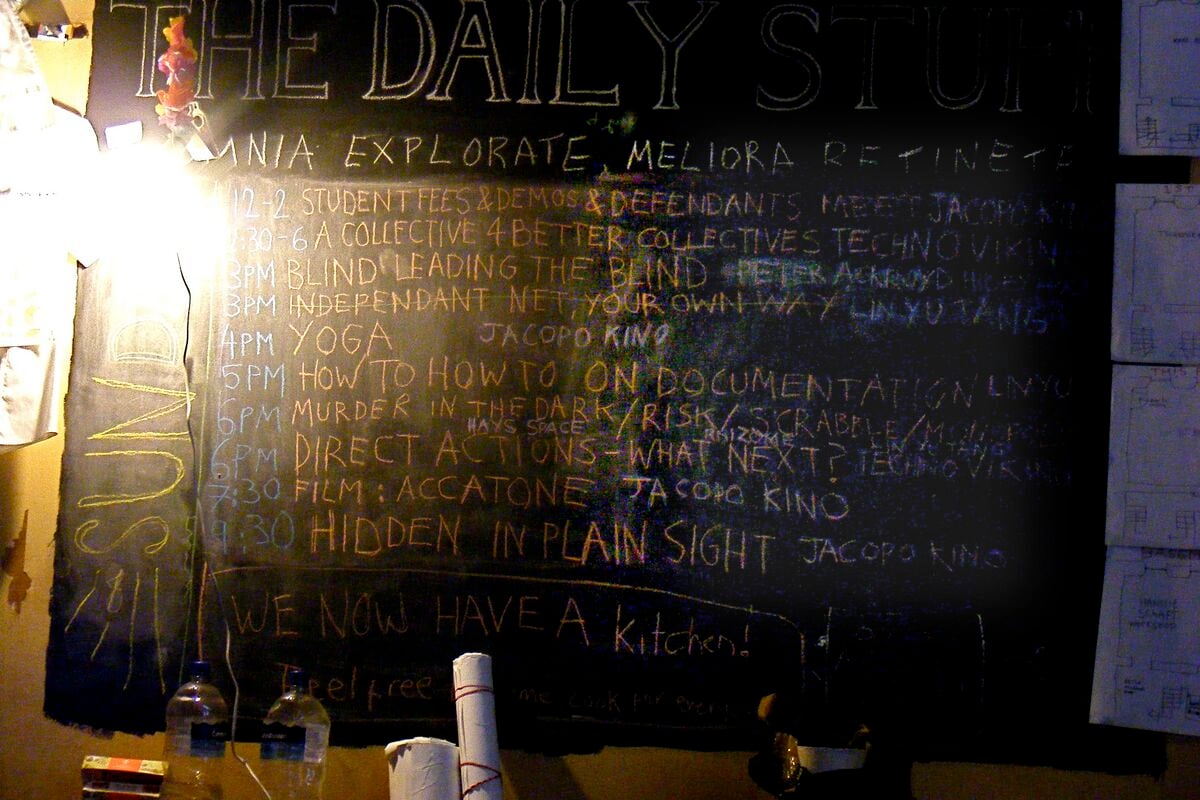 THE DAILY STUFF
MNIA EXPLORATE, MELIORA RETINETE
12-2 STUDENT FEES & DEMOS & DEFENDANTS MEET JACOPO
:30-6 A COLLECTIVE 4 BETTER COLLECTIVES TECHNO VIKIN
3PM BLIND LEADING THE BLIND PETER ACKROYD
3PM INDEPENDANT NET, YOUR OWN WAY LIN YU TANG
4PM YOGA JACOPO KINO
5PM HOW TO HOW TO ON DOCUMENTATION LIN YU
6PM MURDER IN THE DARK/RISK/SCRABBLE/
HAYS SPACE RHIZOME
6PM DIRECT ACTIONS-WHAT NEXT? TECHNO VIKING
7:30 FILM: ACCATONE JACOPO KINO
9:30 HIDDEN IN PLAIN SIGHT JACOPO KINO
SUND
WE NOW HAVE A Kitchen!
Feel free me cook for every